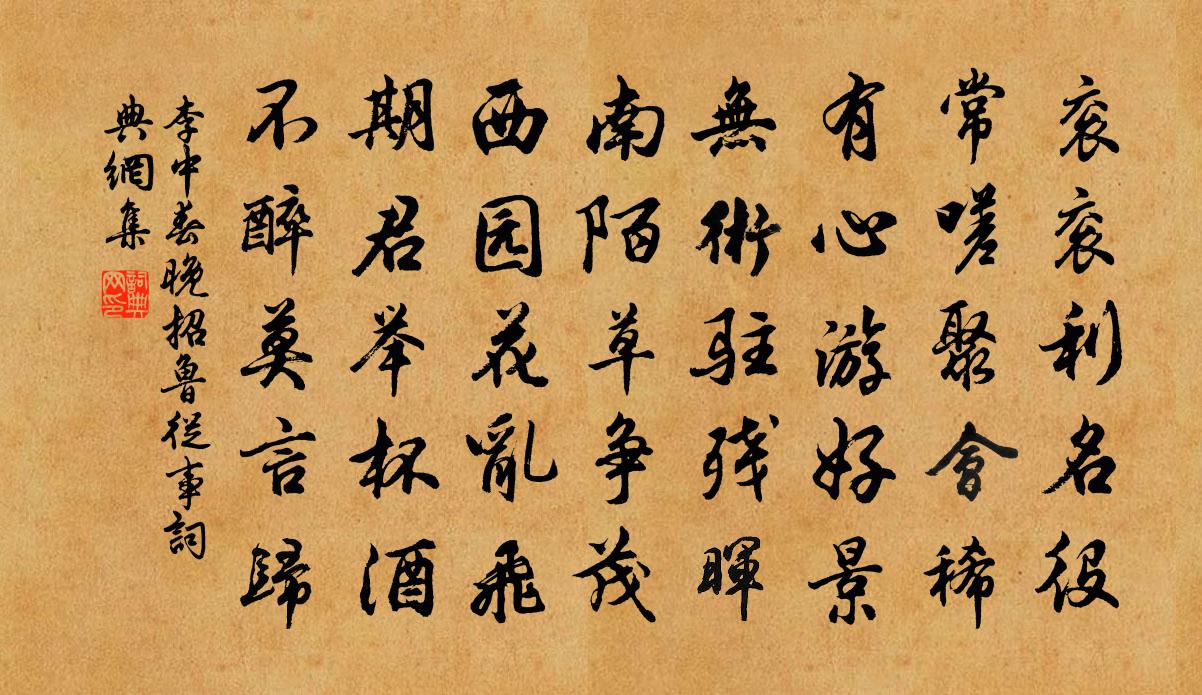 衮衮利名役
常嗟聚會稀
有心游好景
無術駐残暉
南陌草争茂
西园花亂飛
期君举杯酒
不醉莫言歸
李中春晚招魯從事詞
典網集
詞典
网印